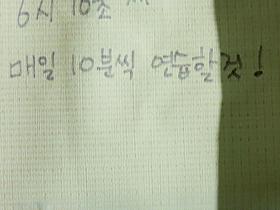 6시 10초
매일 10분씩 연습할것!